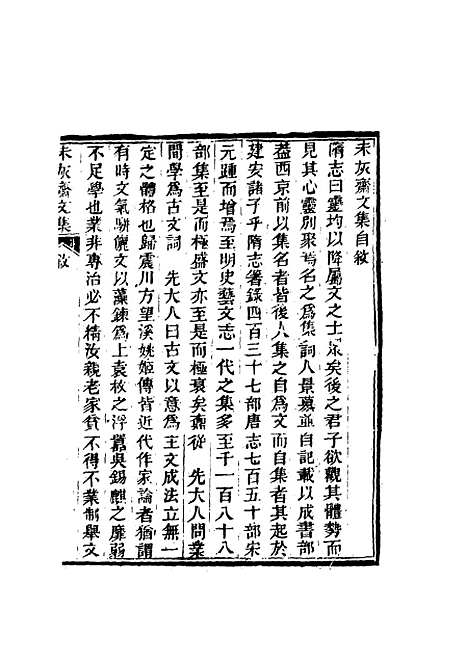 未灰齋文集自敘
隋志曰靈均以降屬文之士衆矣後之君子欲觀其體勢而
見其心靈別聚焉名之爲集詞人景慕並自記載以成書部
葢西京前以集名者皆後人集之自爲文而自集者其起於
建安諸子乎隋志箸錄四百三十七部唐志七百五十部宋
元踵而增焉至明史藝文志一代之集多至千一百八十八
部集至是而極盛文亦至是而極衰矣鼒從　先大人問業
間學爲古文詞　先大人曰古文以意爲主文成法立無一
定之體格也歸震川方望溪姚姬傳皆近代作家論者猶謂
有時文氣駢儷文以藻鍊爲上袁枚之浮囂吳錫麒之靡弱
不足學也業非專治必不精汝親老家貧不得不業制舉文
未灰齋文集　敘